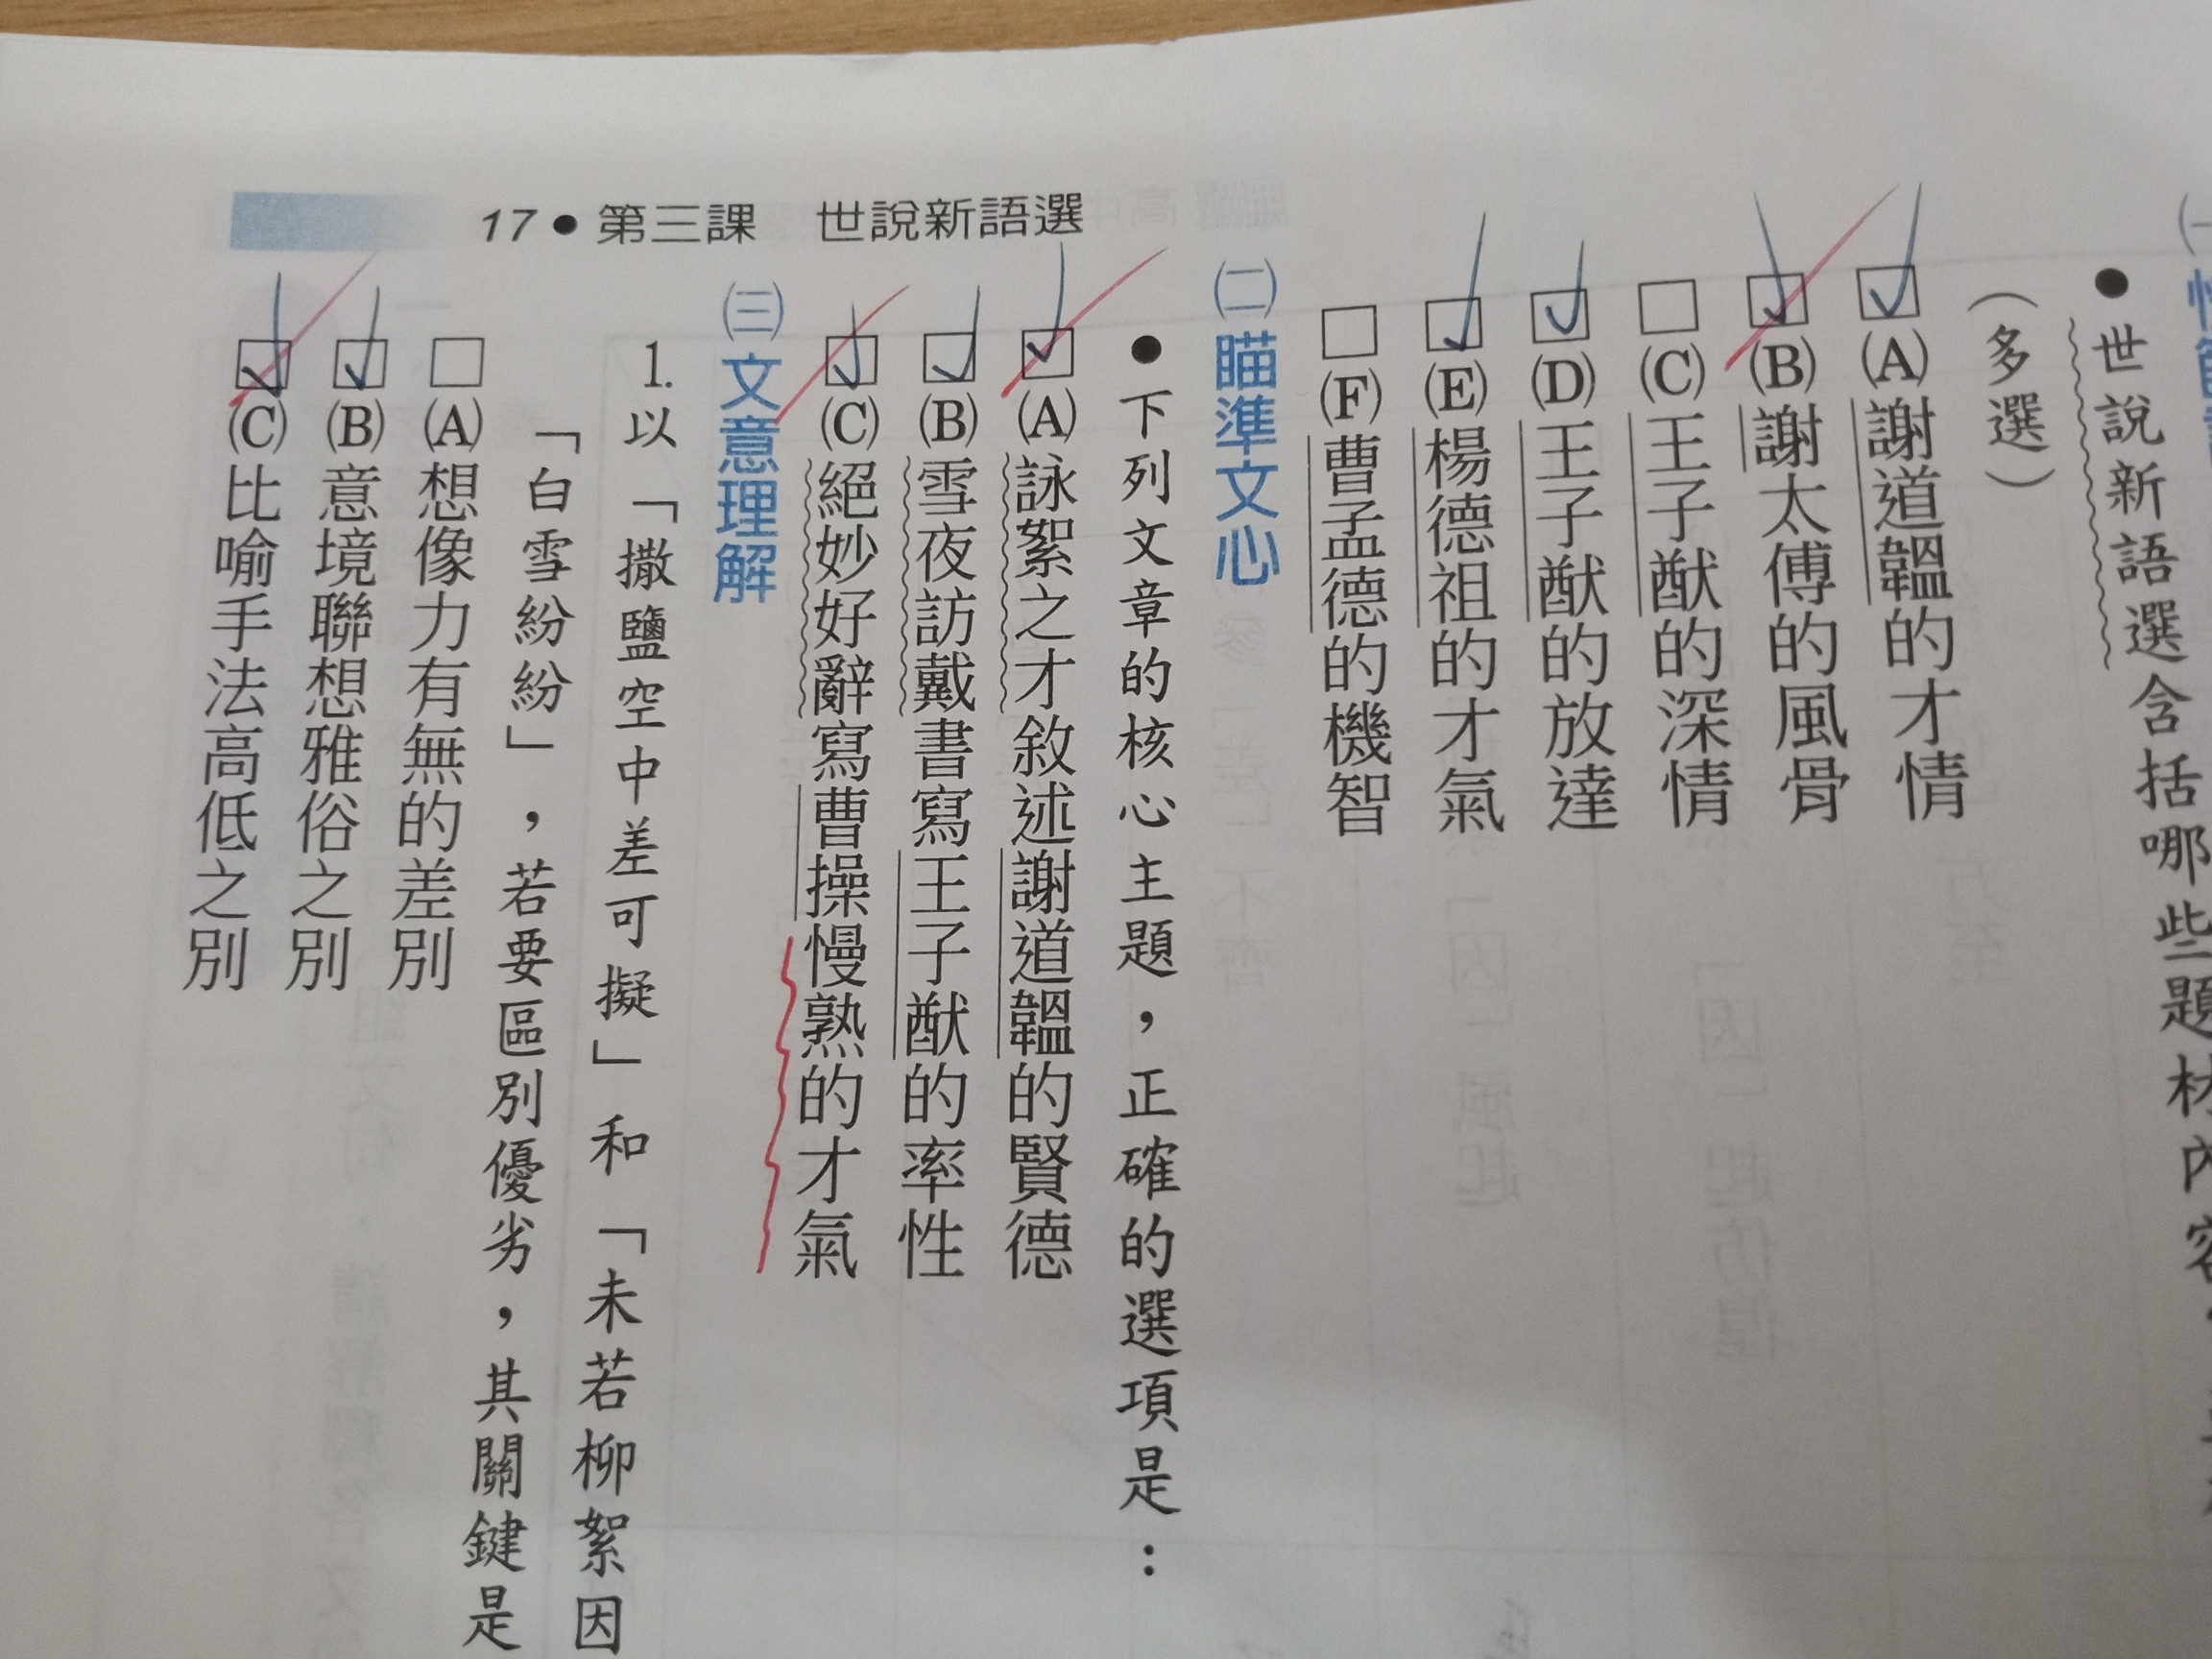 ●世說新語選含括哪些題材內容
（多選）
☑(A)謝道韞的才情
☑(B)謝太傅的風骨
□(C)王子猷的深情
☑(D)王子猷的放達
☑(E)楊德祖的才氣
□(F)曹孟德的機智
㈡瞄準文心
●下列文章的核心主題，正確的選項是：
☑(A)詠絮之才敘述謝道韞的賢德
☑(B)雪夜訪戴書寫王子猷的率性
☑(C)絕妙好辭寫曹操慢熟的才氣
㈢文意理解
1.以「撒鹽空中差可擬」和「未若柳絮因
「白雪紛紛」，若要區別優劣，其關鍵是
□(A)想像力有無的差別
☑(B)意境聯想雅俗之別
☑(C)比喻手法高低之別
17●第三課 世說新語選